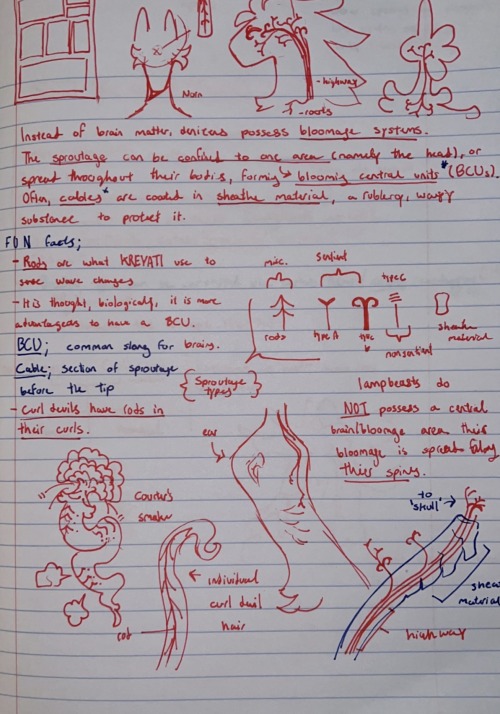 Norn
-highway
-roots
Instead of brain matter, denizens possess bloomage systems.
The sproutage can be confined to one area (namely the head), or
spread throughout their bodies, forming blooming central units* (BCUs).
Often, cables* are coated in sheathe material, a rubbery, waxy
substance to protect it.
FUN facts;
- Rods are what KREYATI use to
sense wave changes
- It is thought, biologically, it is more
advantageous to have a BCU.
BCU; common slang for brains.
Cable; section of sproutage
before the tip
- Curl devils have rods in
their curls.
misc.
sentient
type C
rods
type A
type
b
nonsentient
sheathe
material
{Sproutage
types}
lampbeasts do
NOT possess a central
brain/bloomage area this
bloomage is spread along
thier spines.
ear
Courter's
smaller
rod
individual
curl devil
hair
to
'skull'
shea
material
highway